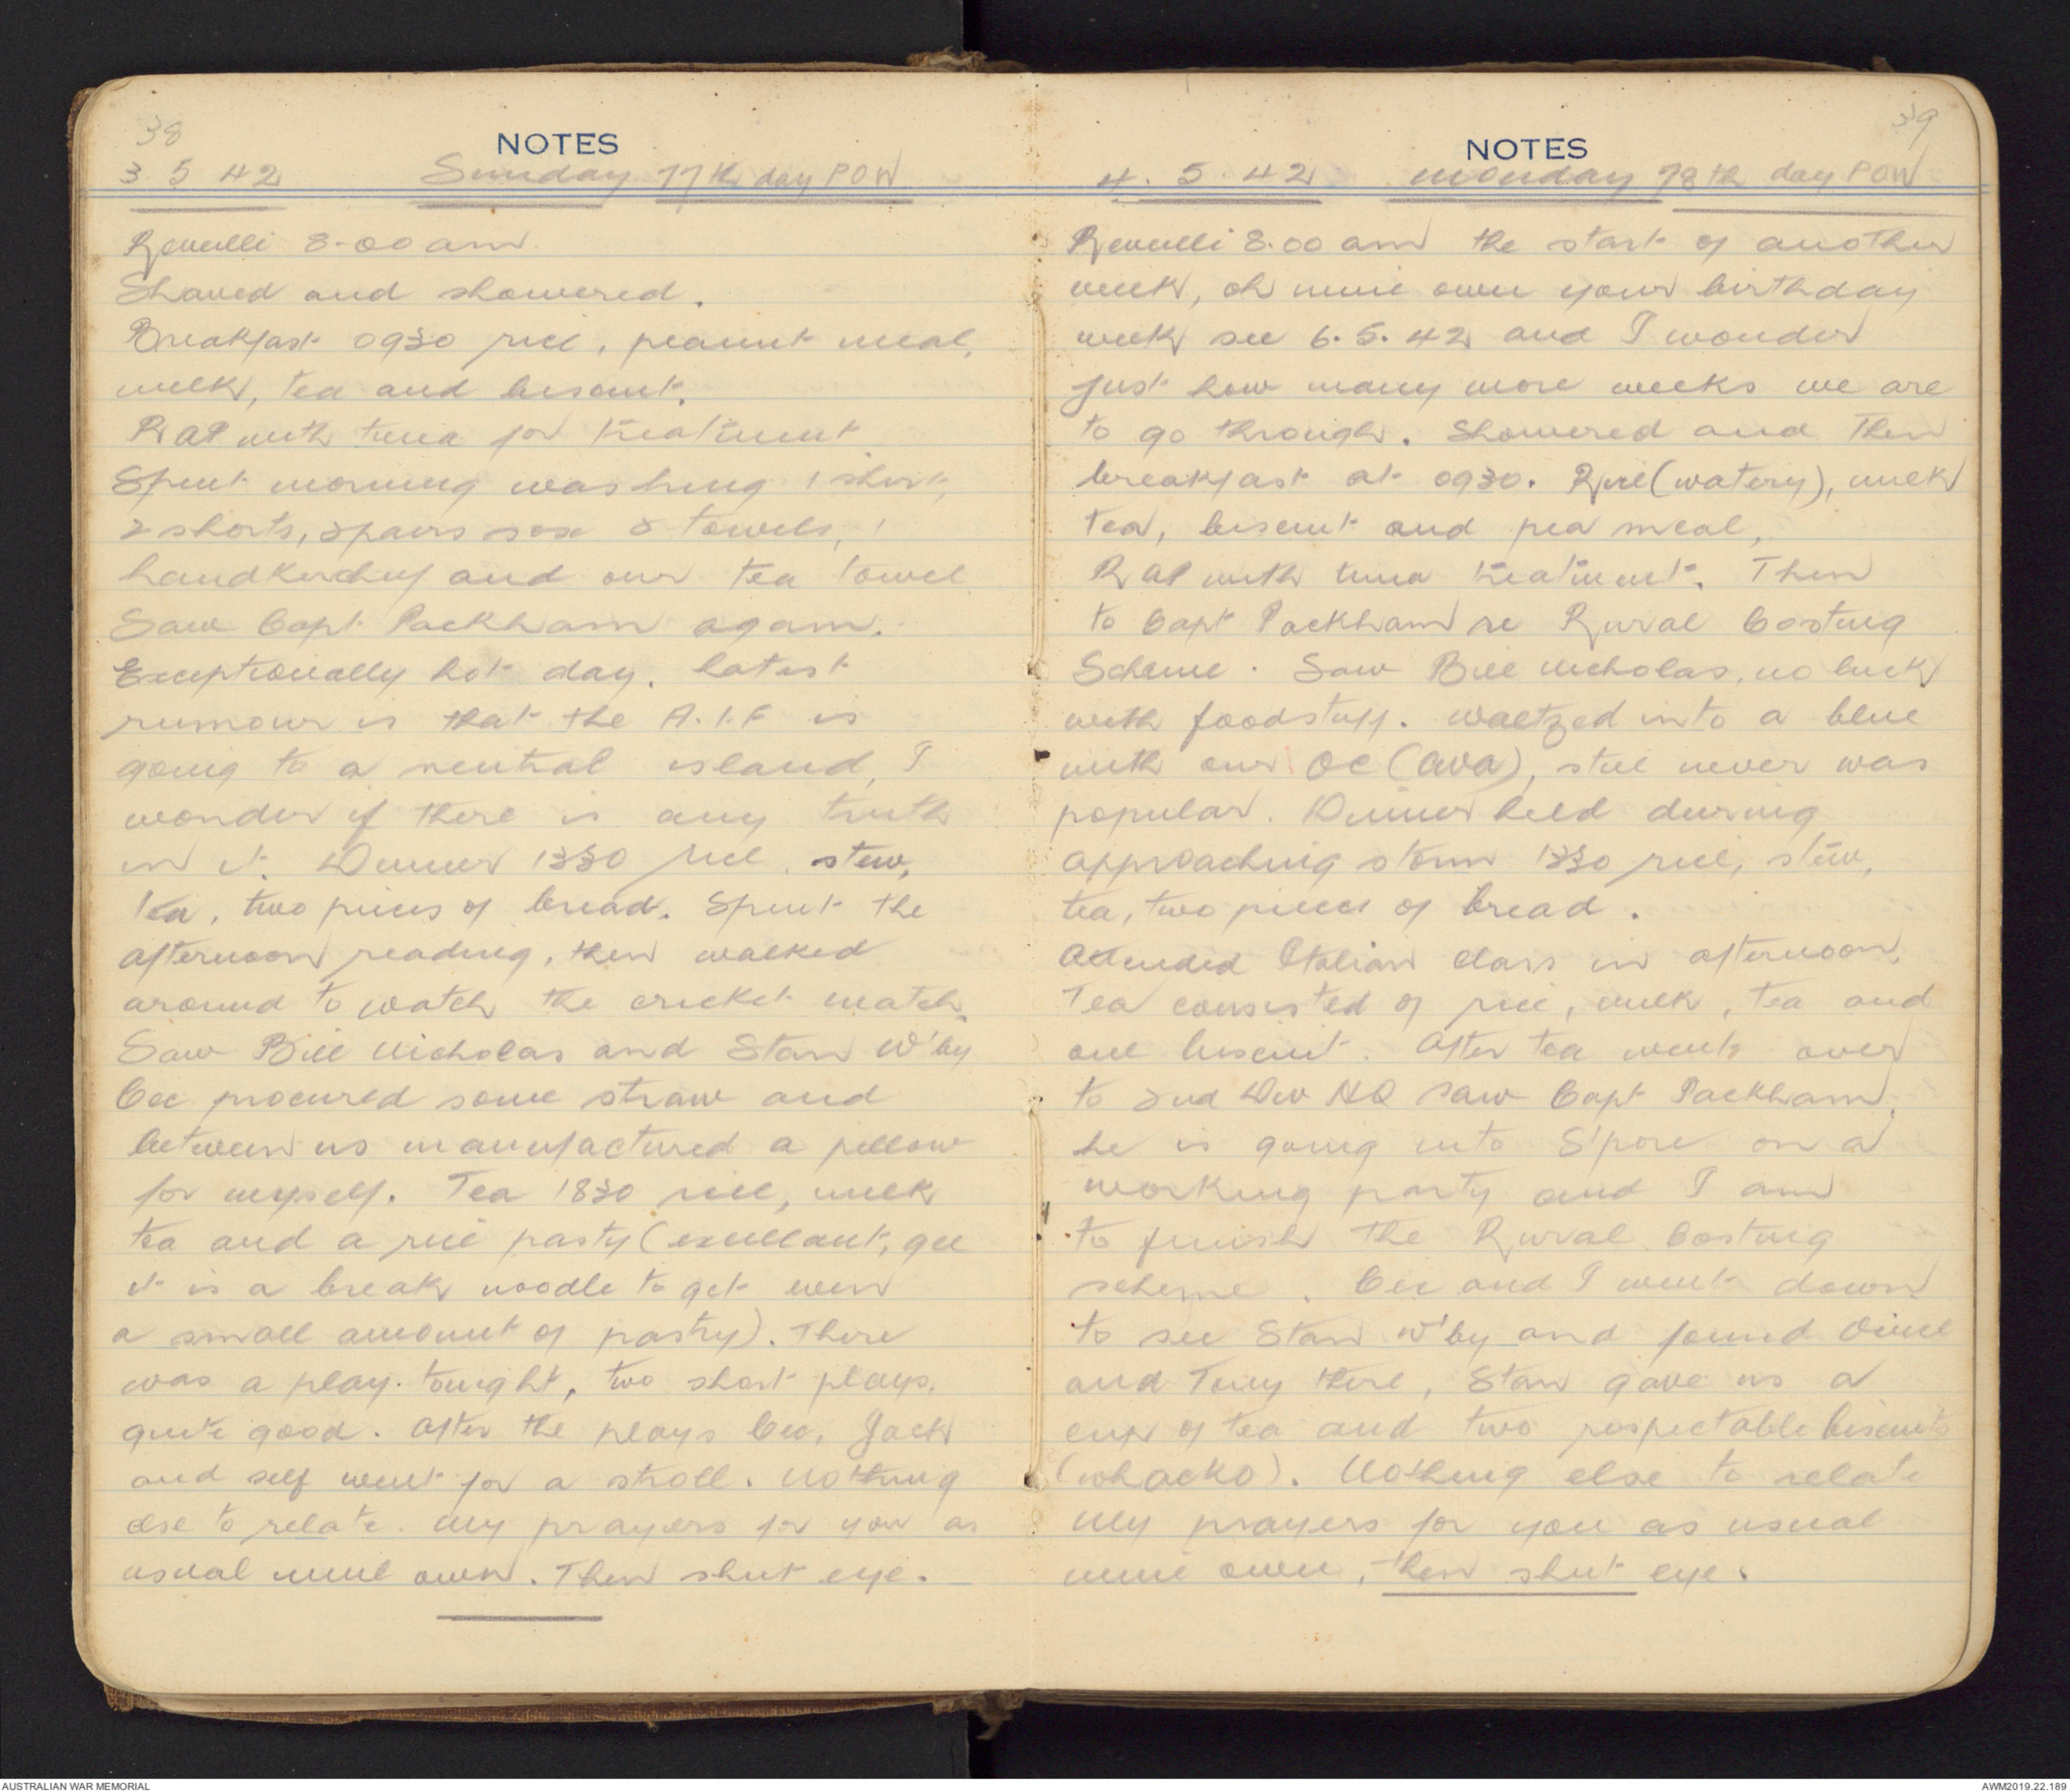 38
NOTES
3 5 42 Sunday 77th day POW
Reveilli 8-00 am.
Shaved and showered.
Breakfast 0930 rice, peanut meal,
milk, tea and biscuit.
RAP with tinea for treatment
Spent morning washing 1 shirt,
2 shorts, 2 pairs sox 2 towels, 1
handkerchief and our tea towel
Saw Capt Packham again.
Exceptionally hot day. Latest
rumour is that the A.I.F is
going to a neutral island, I
wonder if there is any truth
in it. Dinner 1330 rice, stew,
tea, two pieces of bread. Spent the
afternoon reading, then walked
around to watch the cricket match.
Saw Bill Nicholas and Stan W'by
Cec procured some straw and
between us manufactured a pillow
for myself. Tea 1830 rice, milk
tea and a rice pasty (excellant, gee
it is a break noodle to get even
a small amount of pastry). There
was a play tonight, two short plays,
quite good. After the plays Cec, Jack
and self went for a stroll. Nothing
else to relate. My prayers for you as
usual mine own. Then shut eye.
39
NOTES
4. 5. 42 Monday 78th day POW
Reveilli 8.00 am the start of another
week, oh mine own your birthday
week see 6.5.42 and I wonder
just how many more weeks we are
to go through. Showered and then
breakfast at 0930. Rice (watery), milk
tea, biscuit and pea meal,
RAP with tinea treatment. Then
to Capt Packham re Rural Costing
Scheme. Saw Bill Nicholas, no luck
with foodstuff. Waltzed into a blue
with our OC (Ava), still never was
popular. Dinner held during
approaching storm 1330 rice, stew,
tea, two pieces of bread.
Attended Italian class in afternoon.
Tea consisted of rice, milk, tea and
one biscuit. After tea went over
to 2nd Div HQ saw Capt Packham,
he is going into S'pore on a
working party and I am
to finish the Rural Costing
scheme. Cec and I went down
to see Stan W'by and found
and Tony there, Stan gave us a
cup of tea and two respectable biscuits
(whacko). Nothing else to relate
My prayers for you as usual
mine own, then shut eye.
AUSTRALIAN WAR MEMORIAL
AWM2019.22.189